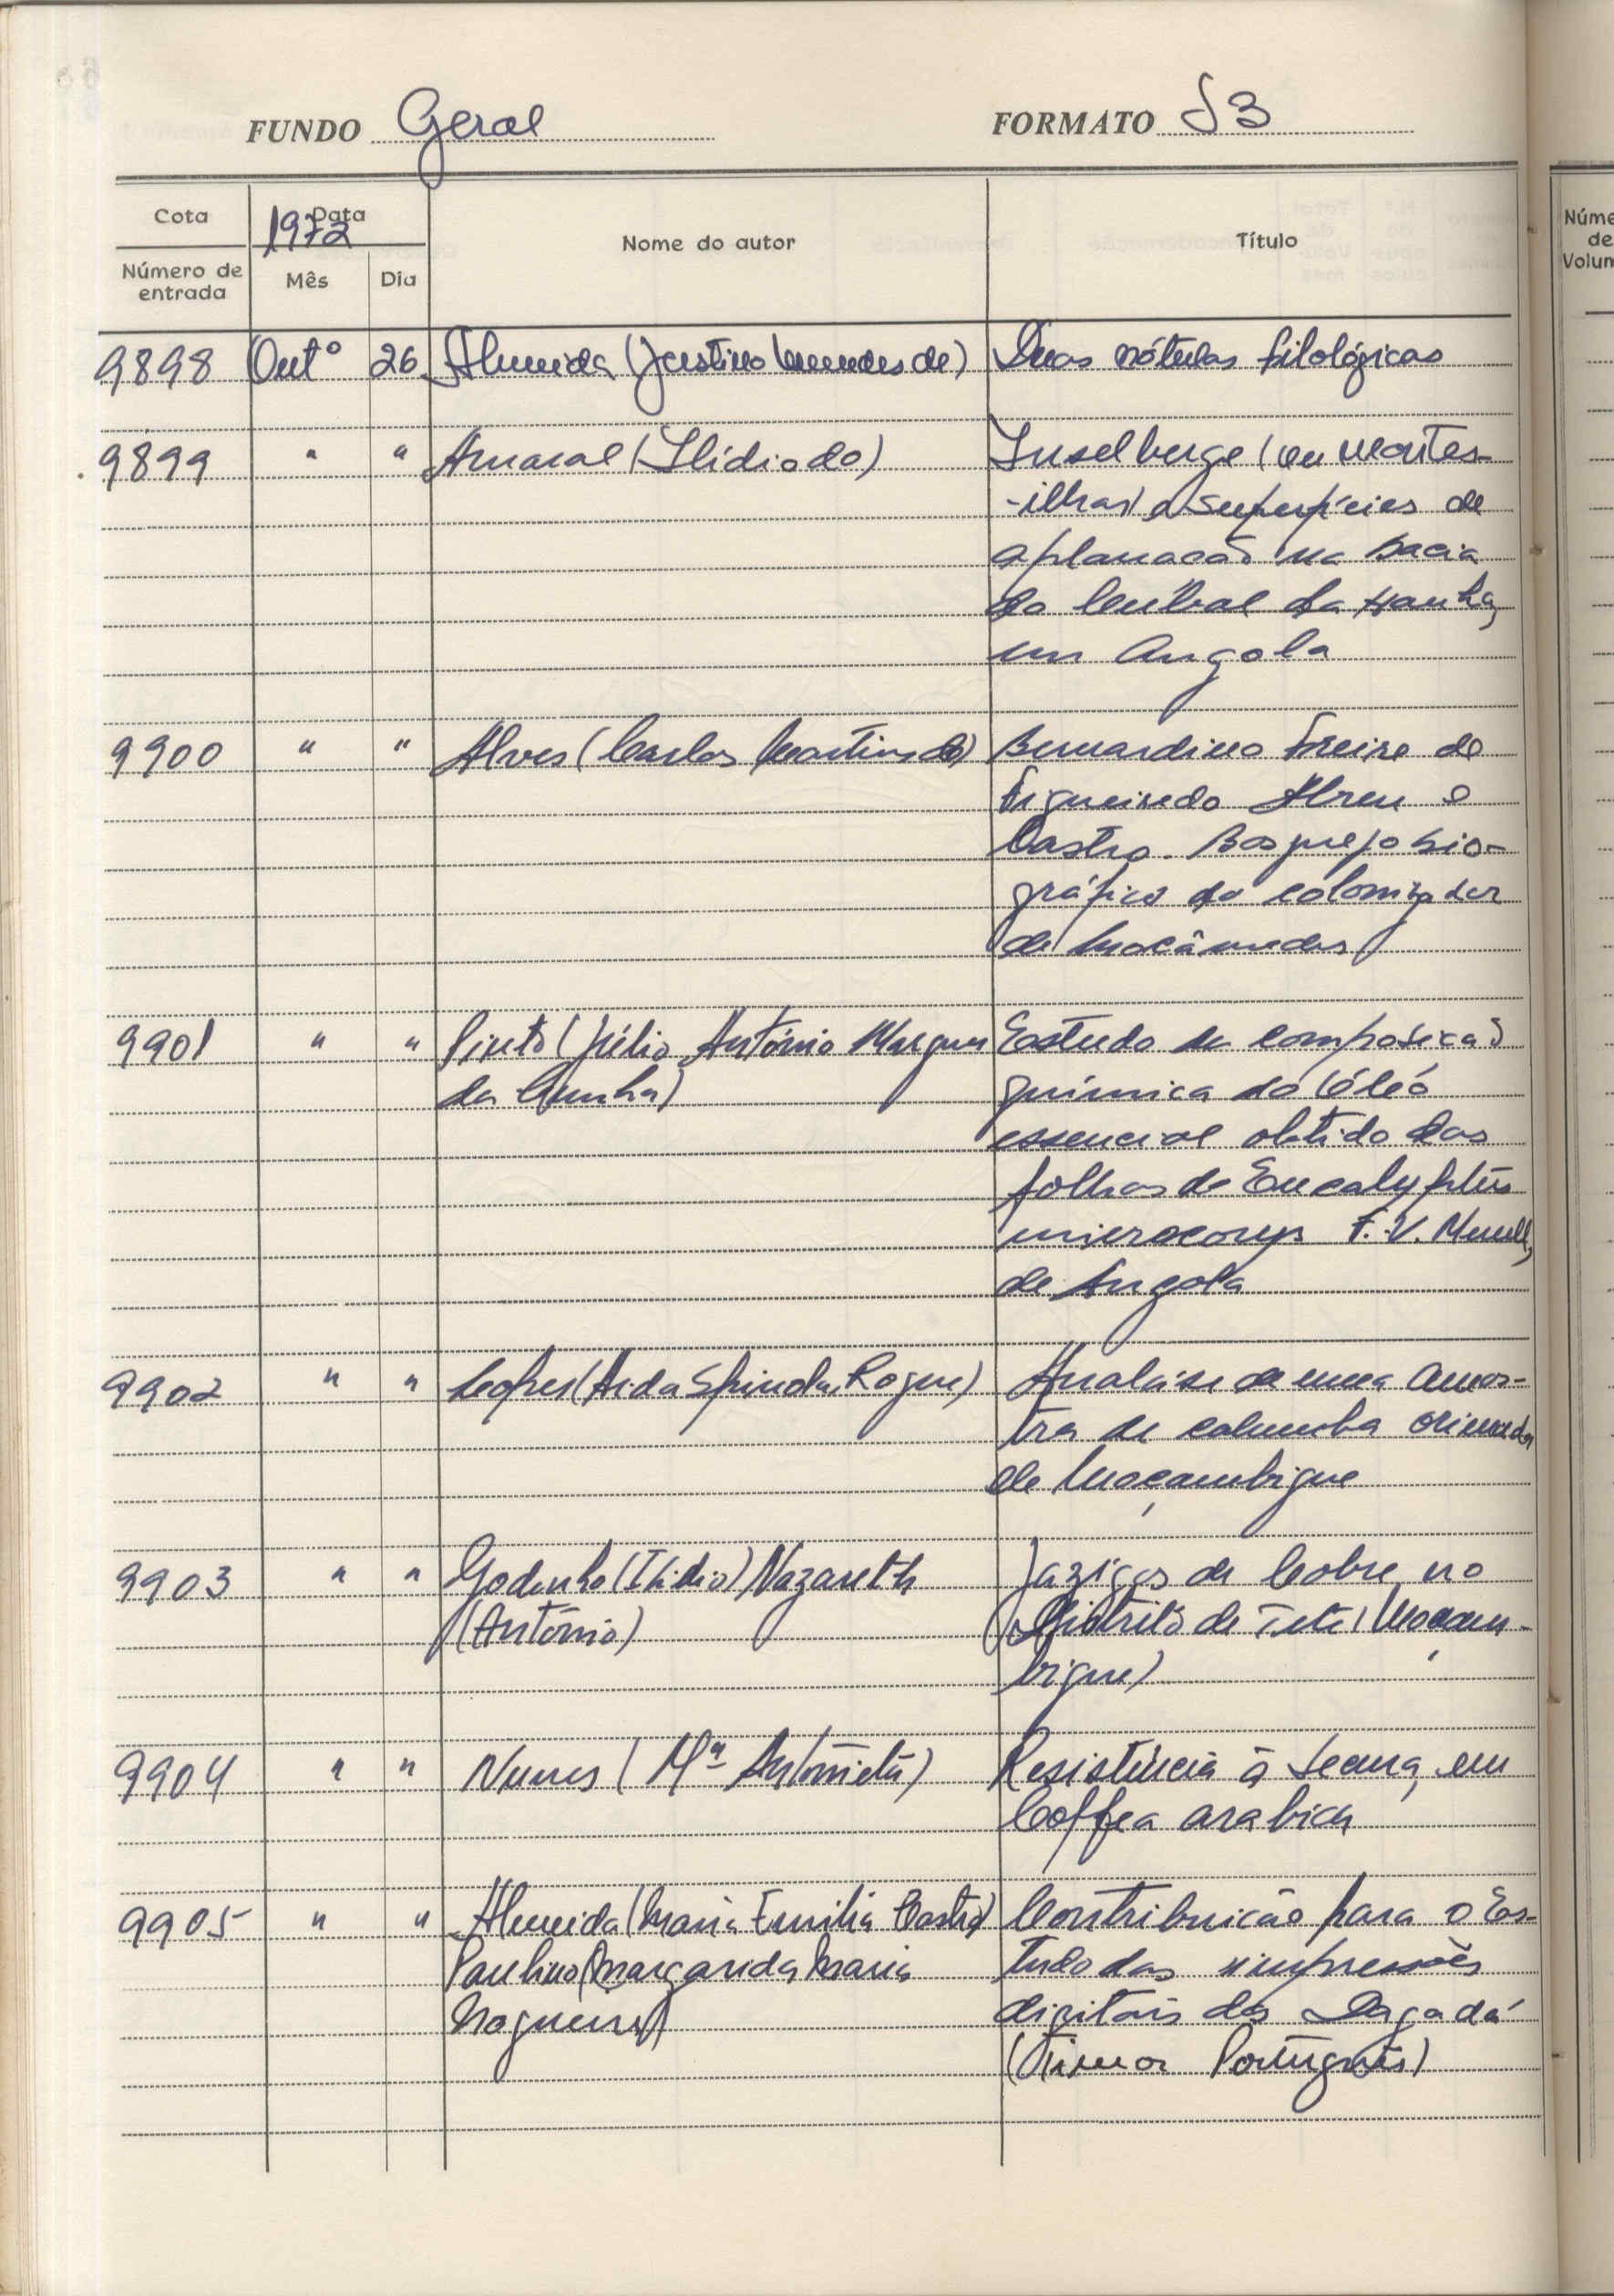 FUNDO Geral FORMATO S3
Cota Data 1972 Nome do autor Título Núme
de
Volum
Número de entrada Mês Dia
9898 Outº 26 Almeida (Justino Mendes de) Duas nótulas filológicas
9899 " " Amaral (Ilídio do) Inselberge (ou montes-
-ilhas) e superfícies de
aplanação na bacia
do Cubal da Hanha,
em Angola
9900 " " Alves (Carlos Martins de) Bernardino Freire de
Figueiredo Abreu e
Castro. Bosquejo bio-
gráfico do colonizador
de Moçâmedes
9901 " " Pinto (Júlio António Marques Estudo da composição
da Cunha) química do óleo
essencial obtido das
folhas de Eucalyptus
microcorys F. V. Muell,
de Angola
9902 " " Lopes (Aida Spínola Roque) Análise de uma amos-
tra de columba oriunda
de Moçambique
9903 " " Godinho (Ilídio) Nazareth Jazigos de Cobre no
(António) Distrito de Tete (Moçam-
bique)
9904 " " Nunes (Mª Antonieta) Resistência à secura, em
Coffea arabica
9905 " " Almeida (Maria Emília Castro) Contribuição para o Es-
Paulino (Margarida Maria tudo das impressões
Nogueira) digitais dos Dagadá
(Timor Português)